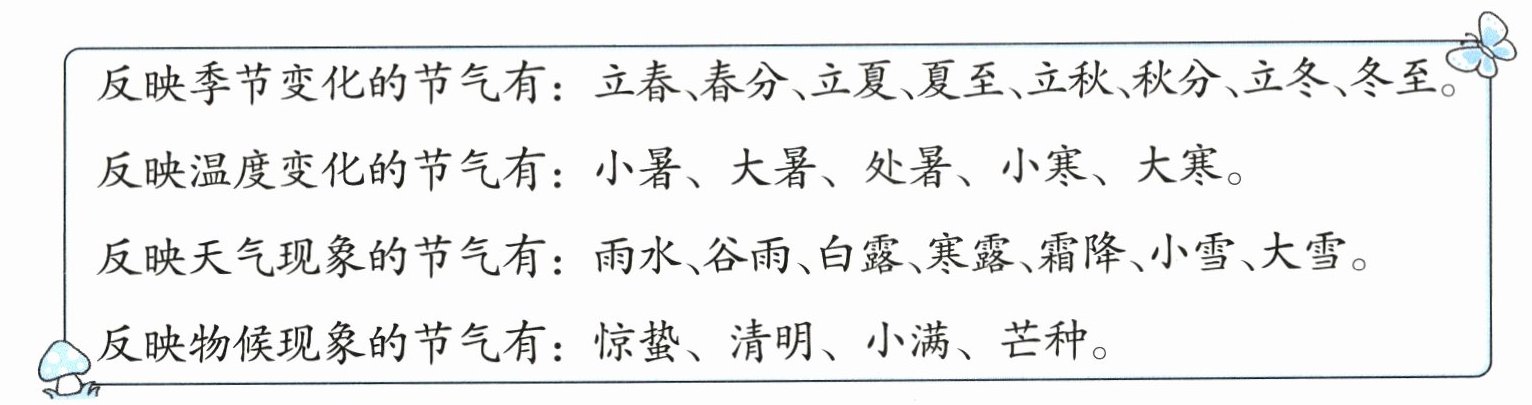 反映季节变化的节气有：立春、春分、立夏、夏至、立秋、秋分、立冬、冬至。
反映温度变化的节气有：小暑、大暑、处暑、小寒、大寒。
反映天气现象的节气有：雨水、谷雨、白露、寒露、霜降、小雪、大雪。
反映物候现象的节气有：惊蛰、清明、小满、芒种。